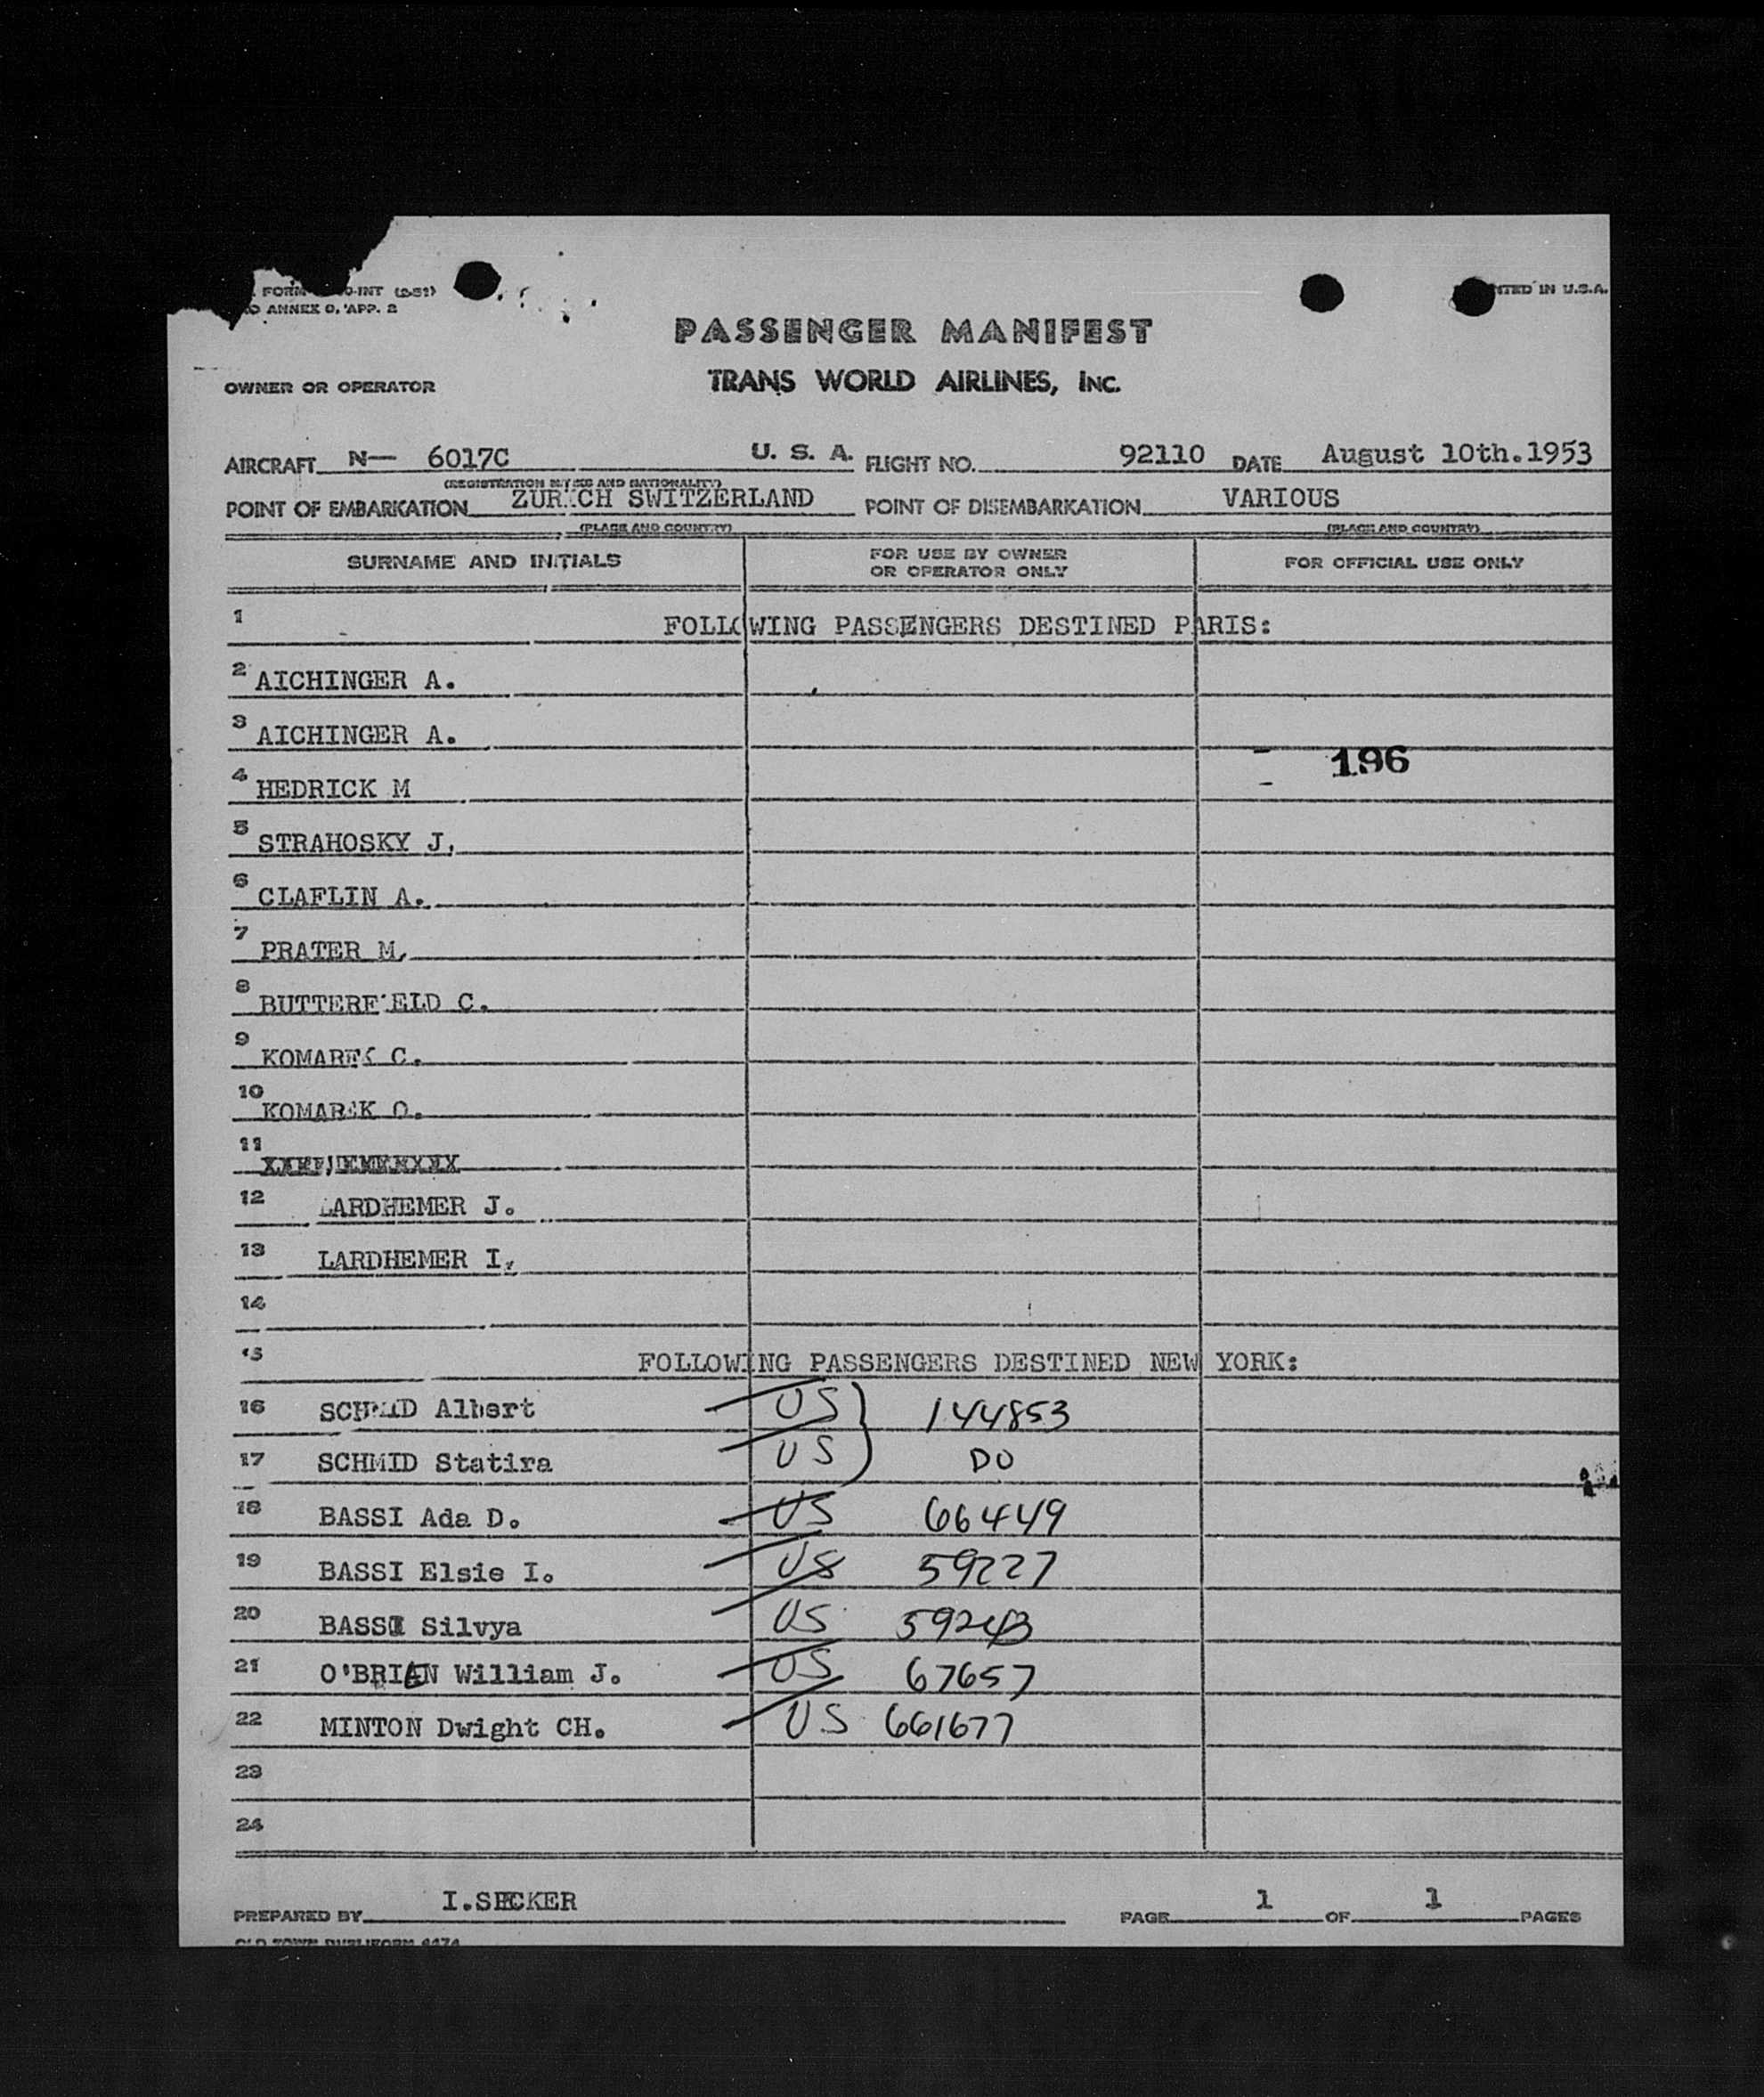 FORM 0-INT (2-51)
ANNEX 9, APP. 2
NTED IN U.S.A.
PASSENGER MANIFEST
OWNER OR OPERATOR TRANS WORLD AIRLINES, INC.
AIRCRAFT N— 6017C U. S. A. FLIGHT NO. 92110 DATE August 10th.1953
(REGISTRATION MARKS AND NATIONALITY)
POINT OF EMBARKATION ZURICH SWITZERLAND POINT OF DISEMBARKATION VARIOUS
(PLACE AND COUNTRY) (PLACE AND COUNTRY)
SURNAME AND INITIALS FOR USE BY OWNER OR OPERATOR ONLY FOR OFFICIAL USE ONLY
1 FOLLOWING PASSENGERS DESTINED PARIS:
2 AICHINGER A.
3 AICHINGER A.
196
4 HEDRICK M
5 STRAHOSKY J.
6 CLAFLIN A.
7 PRATER M.
8 BUTTERFIELD C.
9 KOMAREK C.
10 KOMAREK O.
11
12 LARDHEMER J.
13 LARDHEMER I.
14
15 FOLLOWING PASSENGERS DESTINED NEW YORK:
16 SCHMID Albert US 144853
17 SCHMID Statira US DO
18 BASSI Ada D. US 66449
19 BASSI Elsie I. US 59227
20 BASSI Silvya US 59243
21 O'BRIEN William J. US 67657
22 MINTON Dwight CH. US 661677
23
24
PREPARED BY I.SECKER PAGE 1 OF 1 PAGES
OLD TOWN DUPLIFORM 4474